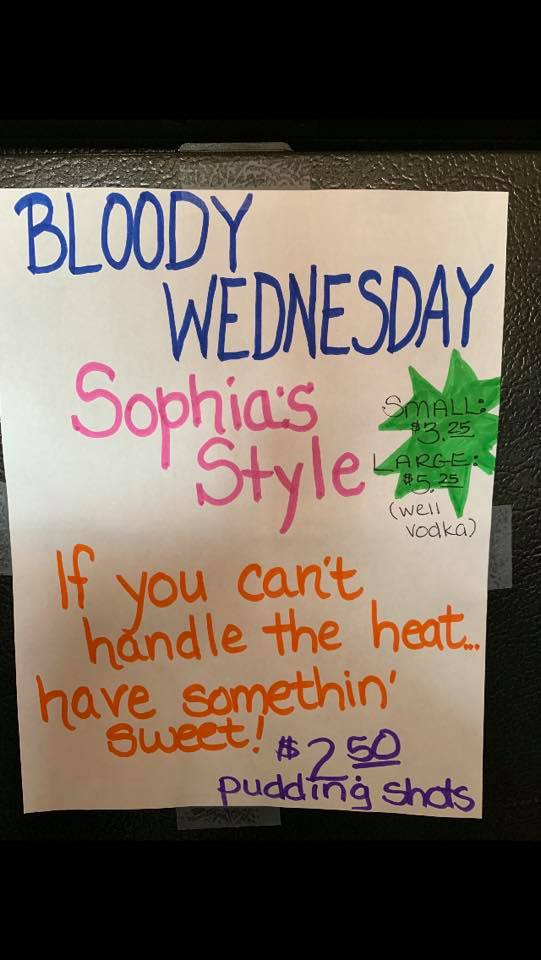 BLOODY
WEDNESDAY
Sophia's
Style
SMALL:
$3.25
LARGE:
$5.25
(well
vodka)
If you can't
handle the heat...
have somethin'
sweet!
$2.50
pudding shots